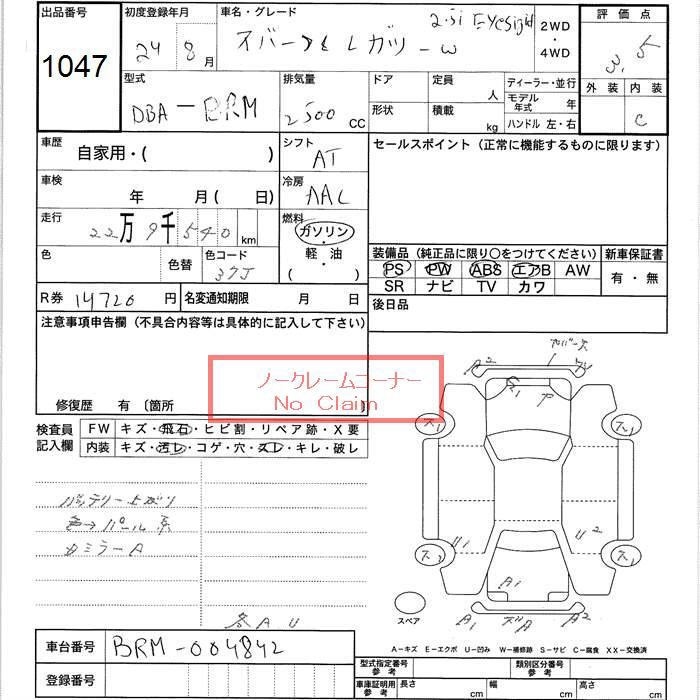 出品番号
1047
初度登録年月
24 8 月
車名・グレード
2.5i EyeSight
スバル レガシィ-W
2WD
・
4WD
評価点
3.5
外装 内装
C
型式
DBA-BRM
排気量
2500 CC
ドア
形状
定員
人
積載
kg
ディーラー・並行
モデル年式 年
ハンドル 左・右
車歴
自家用・( )
シフト
AT
セールスポイント (正常に機能するものに限ります)
車検
年 月 ( 日)
冷房
AAC
走行
22万9千540 km
燃料
ガソリン・
軽・油
( )
色
色替
色コード
37J
装備品 (純正品に限り○をつけてください)
新車保証書
PS PW ABS エアB AW
SR ナビ TV カワ
有・無
R券 14720 円
名変通知期限 月 日
後日品
注意事項申告欄 (不具合内容等は具体的に記入して下さい)
ノークレームコーナー
No Claim
修復歴 有 〔箇所 〕
検査員
記入欄
FW キズ・飛石・ヒビ割・リペア跡・X要
内装 キズ・汚レ・コゲ・穴・スレ・キレ・破レ
バッテリー上がり
色→パール系
カミラーA
各AU
A2
A1
U1
U2
A1
A1
A2
スペア
A-キズ E-エクボ U-凹み W-補修跡 S-サビ C-腐食 XX-交換済
車台番号
BRM-004842
登録番号
型式指定番号
参考
類別区分番号
参考
車庫証明用
参考
長さ cm
幅 cm
高さ cm